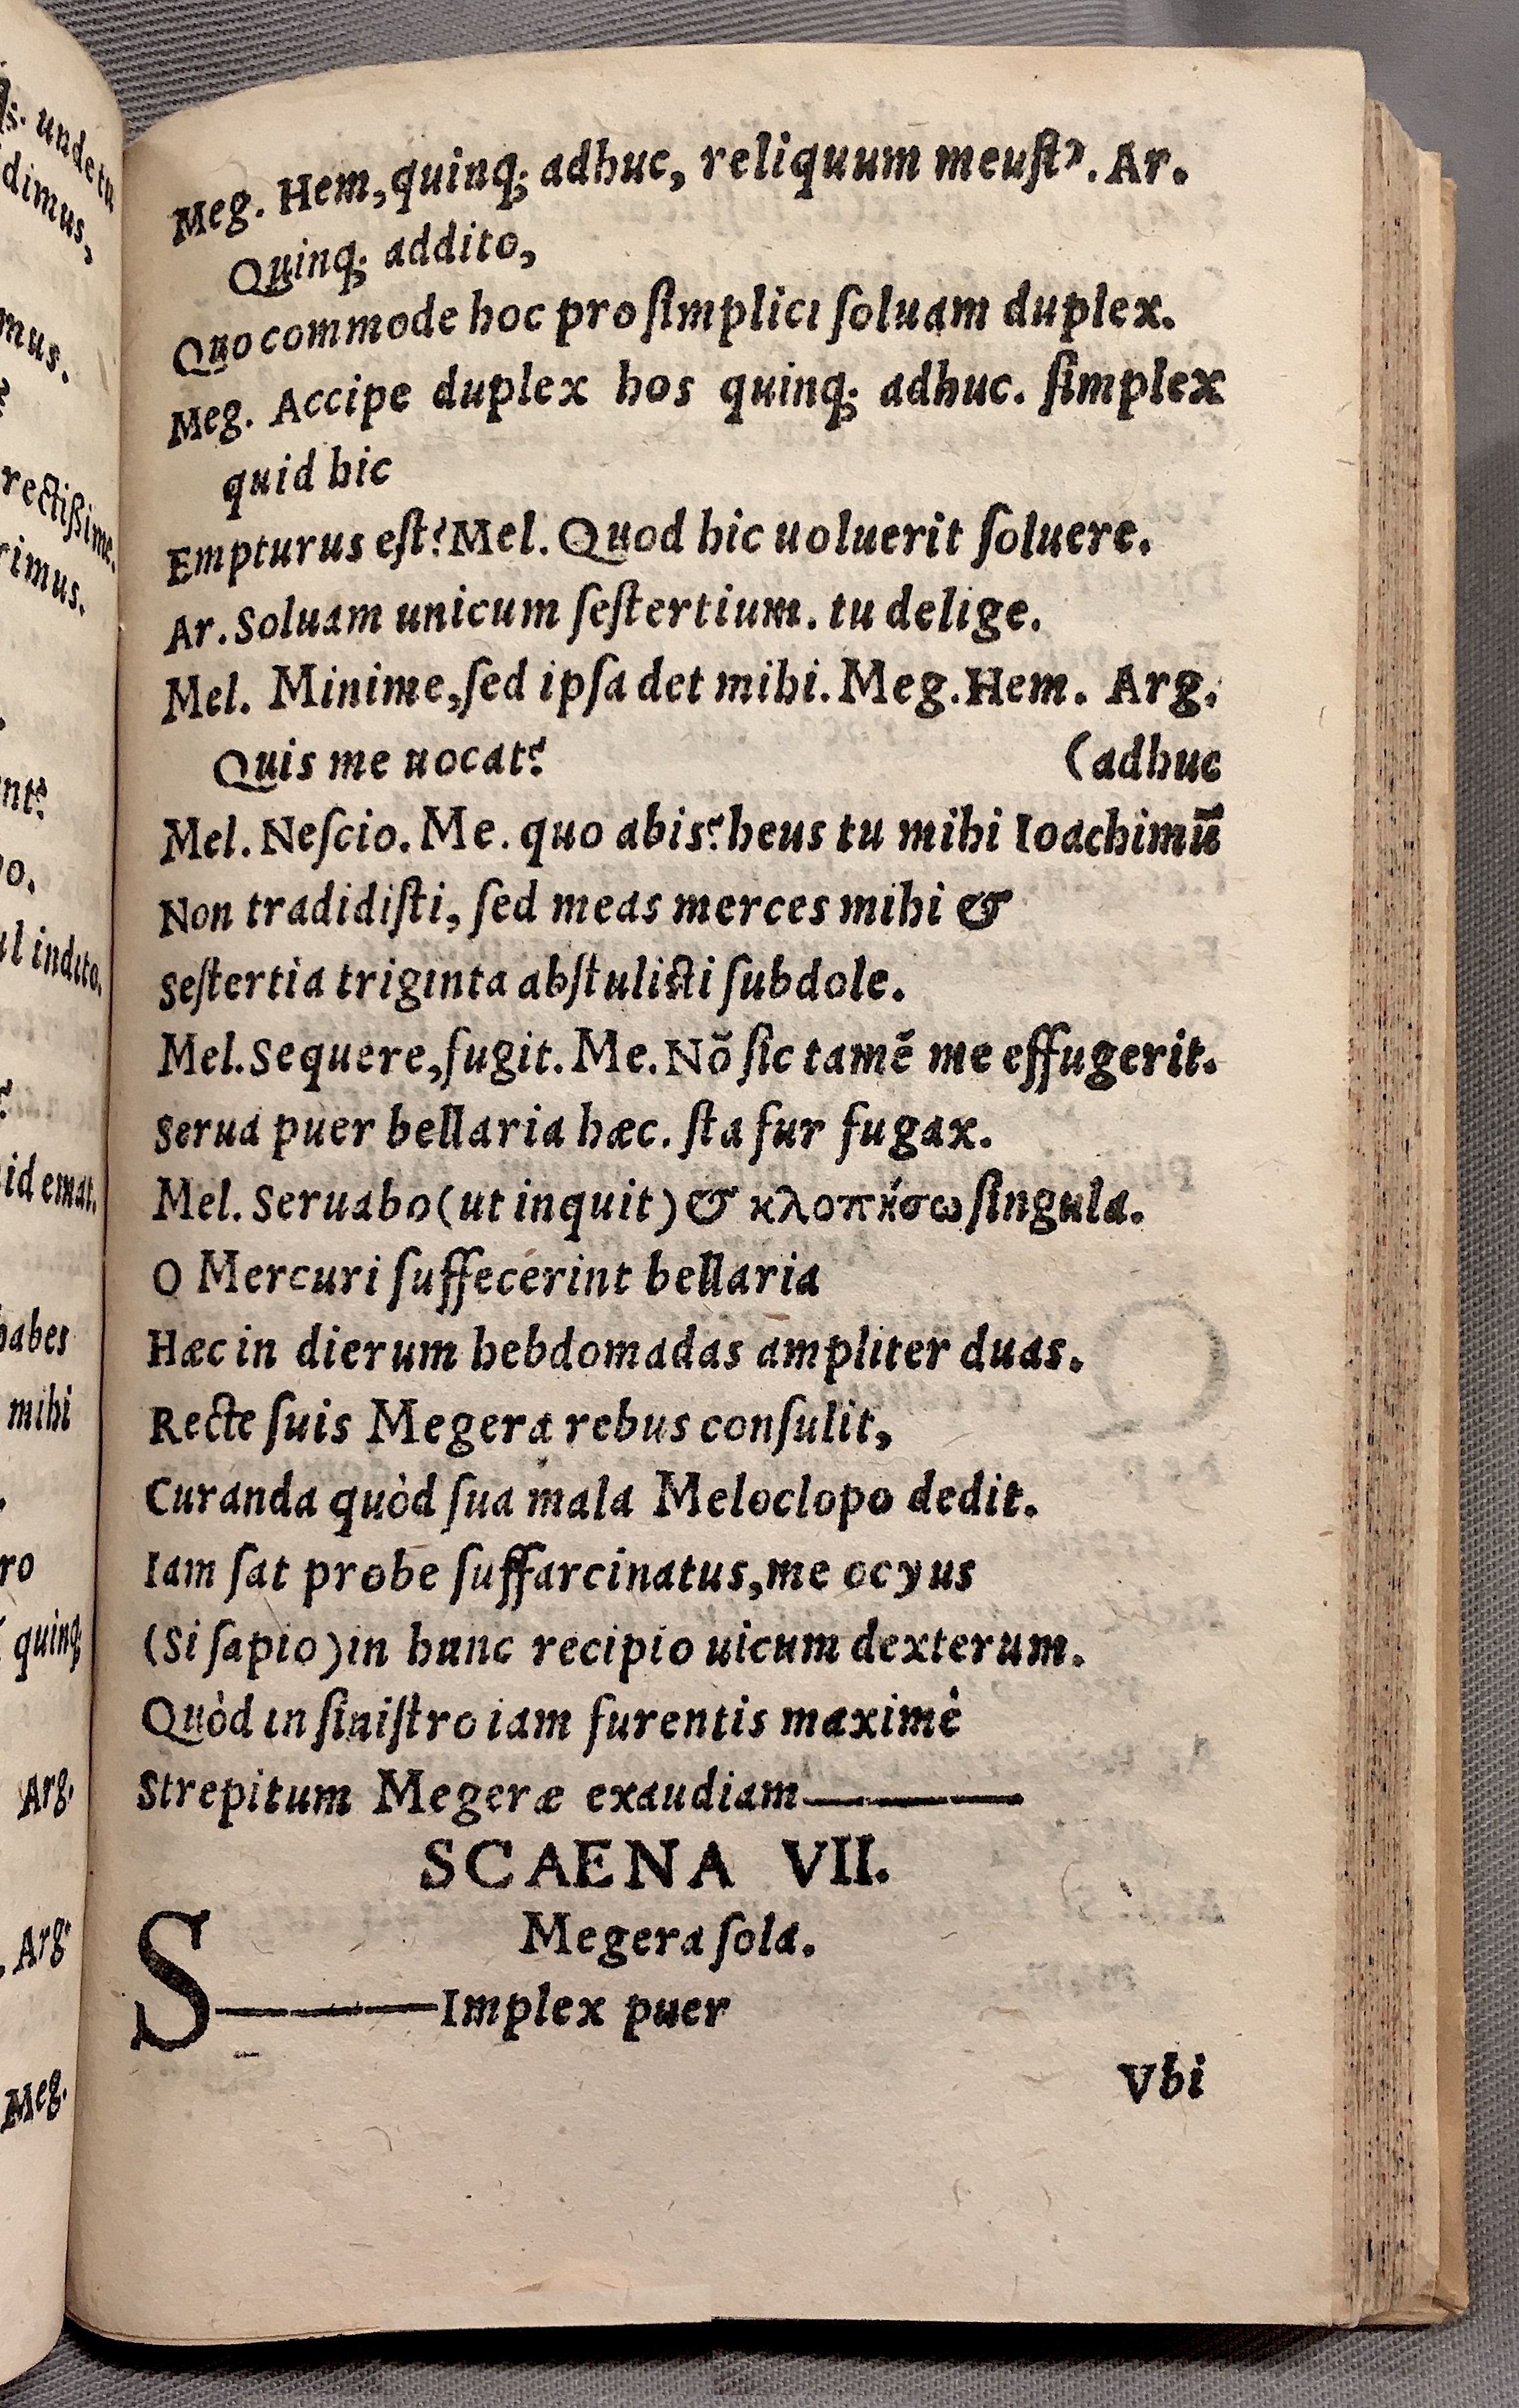 Meg. Hem, quinq; adhuc, reliquum meuſt?. Ar.
Quinq; addito,
Quo commode hoc pro ſimplici ſoluam duplex.
Meg. Accipe duplex hos quinq; adhuc. ſimplex
quid hic
Empturus eſt? Mel. Quod hic uoluerit ſoluere.
Ar. Soluam unicum ſeſtertium. tu delige.
Mel. Minime, ſed ipſa det mihi. Meg. Hem. Arg.
Quis me uocat? (adhuc
Mel. Neſcio. Me. quo abis? heus tu mihi Ioachimū
Non tradidiſti, ſed meas merces mihi &
Seſtertia triginta abſtuliſti ſubdole.
Mel. Sequere, fugit. Me. Nō ſic tamē me effugerit.
Serua puer bellaria hæc. ſta fur fugax.
Mel. Seruabo (ut inquit) & κλοπήσω ſingula.
O Mercuri ſuffecerint bellaria
Hæc in dierum hebdomadas ampliter duas.
Recte ſuis Megera rebus conſulit,
Curanda quòd ſua mala Meloclopo dedit.
Iam ſat probe ſuffarcinatus, me ocyus
(Si ſapio) in hunc recipio uicum dexterum.
Quòd in ſiniſtro iam furentis maximè
Strepitum Megeræ exaudiam———
SCAENA VII.
Megera ſola.
S———Implex puer
Vbi
undetu
dimus,
mus.
rectißime.
rimus.
indito.
emat.
habes
mihi
quinq;
Arg.
Arg.
Meg.